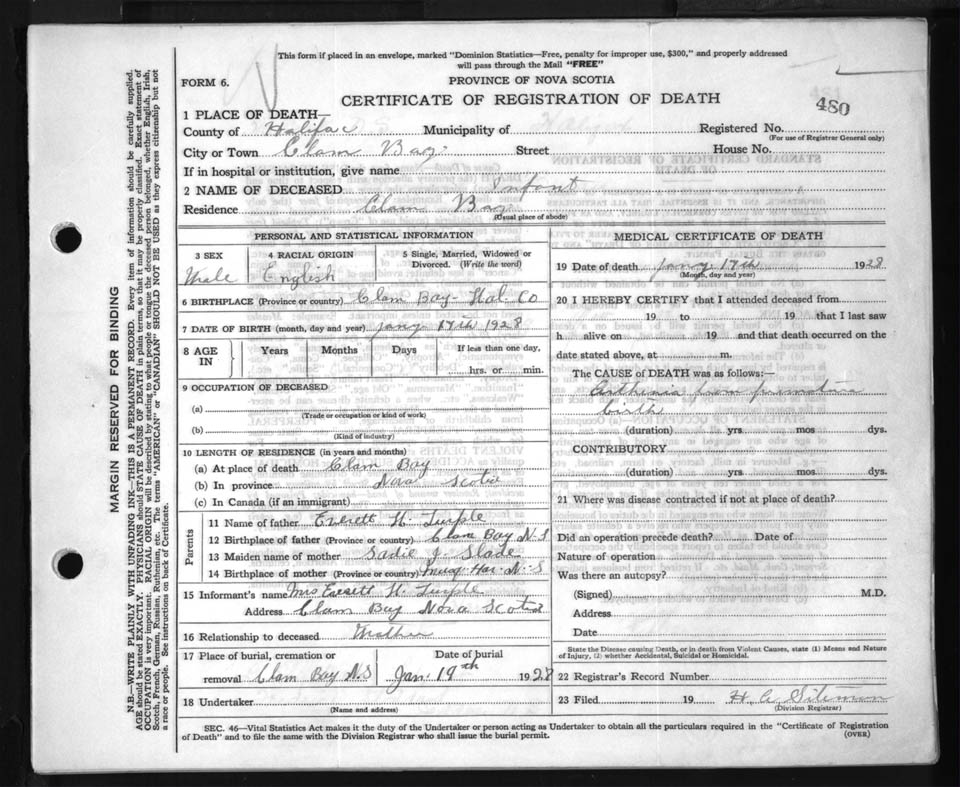 This form if placed in an envelope, marked "Dominion Statistics—Free, penalty for improper use, $300," and properly addressed
will pass through the Mail "FREE"
FORM 6.
PROVINCE OF NOVA SCOTIA
CERTIFICATE OF REGISTRATION OF DEATH
480
1 PLACE OF DEATH—
County of Halifax Municipality of Registered No.
(For use of Registrar General only)
City or Town Clam Bay Street House No.
If in hospital or institution, give name
2 NAME OF DECEASED Infant
Residence Clam Bay
(Usual place of abode)
PERSONAL AND STATISTICAL INFORMATION
3 SEX 4 RACIAL ORIGIN 5 Single, Married, Widowed or
Divorced. (Write the word)
Male English
6 BIRTHPLACE (Province or country) Clam Bay - Hal. Co
7 DATE OF BIRTH (month, day and year) Jany 17th 1928
8 AGE
IN
Years Months Days If less than one day,
hrs. or min.
9 OCCUPATION OF DECEASED
(a)
(Trade or occupation or kind of work)
(b)
(Kind of industry)
10 LENGTH OF RESIDENCE (in years and months)
(a) At place of death Clam Bay
(b) In province Nova Scotia
(c) In Canada (if an immigrant)
Parents
11 Name of father Everett H. Turple
12 Birthplace of father (Province or country) Clam Bay N.S
13 Maiden name of mother Sadie J. Slade
14 Birthplace of mother (Province or country) Har. N-S
15 Informant's name Mrs Everett H. Turple
Address Clam Bay Nova Scotia
16 Relationship to deceased Mother
17 Place of burial, cremation or Date of burial
removal Clam Bay N.S Jan. 19th 1928
18 Undertaker
(Name and address)
MEDICAL CERTIFICATE OF DEATH
19 Date of death Jany 17th 1928
(Month, day and year)
20 I HEREBY CERTIFY that I attended deceased from
19 to 19 that I last saw
h alive on 19 and that death occurred on the
date stated above, at m.
The CAUSE of DEATH was as follows:—
from premature
birth
(duration) yrs. mos dys.
CONTRIBUTORY
(duration) yrs. mos. dys.
21 Where was disease contracted if not at place of death?
Did an operation precede death? Date of
Nature of operation
Was there an autopsy?
(Signed) M.D.
Address
Date
State the Disease causing Death, or in death from Violent Causes, state (1) Means and Nature
of Injury, (2) whether Accidental, Suicidal or Homicidal.
22 Registrar's Record Number
23 Filed 19 H. A.
(Division Registrar)
SEC. 46—Vital Statistics Act makes it the duty of the Undertaker or person acting as Undertaker to obtain all the particulars required in the "Certificate of Registration
of Death" and to file the same with the Division Registrar who shall issue the burial permit.
(OVER)
MARGIN RESERVED FOR BINDING
N.B.—WRITE PLAINLY WITH UNFADING INK—THIS IS A PERMANENT RECORD. Every item of information should be carefully supplied.
AGE should be stated EXACTLY. PHYSICIANS should STATE CAUSE OF DEATH in plain terms, so that it may be properly classified. Exact statement of
OCCUPATION is very important. RACIAL ORIGIN will be described by stating to what people or tongue the deceased person belonged, whether English, Irish,
Scotch, French, German, Russian, Ruthenian, etc. The terms "AMERICAN" or "CANADIAN" SHOULD NOT BE USED as they express citizenship but not
a race or people. See instructions on back of Certificate.